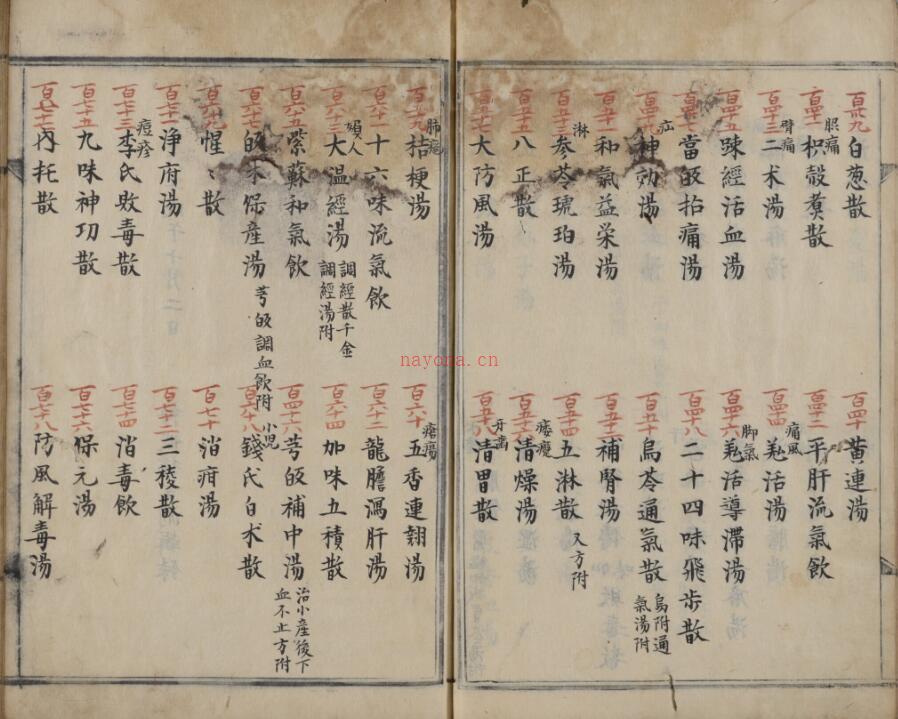 百卅九 白葱散
百四十 黄連湯
痛
百四十一 枳殼煑散
百四十二 平肝流氣飲
臂痛
百四十三 二术湯
痛風
百四十四 羌活湯
百四十五 踈經活血湯
脚氣
百四十六 羌活導滯湯
百四十七 當皈拈痛湯
百四十八 二十四味飛步散
疝
百四十九 神効湯
百五十 烏苓通氣散 烏附通氣湯附
百五十一 和氣益栄湯
百五十二 補腎湯
淋
百五十三 参苓琥珀湯
百五十四 五淋散 又方附
百五十五 八正散
痿
百五十六 清燥湯
百五十七 大防風湯
牙齒
百五十八 清胃散
肺癰
百五十九 桔梗湯
瘡瘍
百六十 五香連翹湯
百六十一 十六味流氣飲
百六十二 龍膽瀉肝湯
婦人
百六十三 大温經湯 調經散千金調經湯附
百六十四 加味五積散
百六十五 紫蘇和氣飲
百六十六 芎皈補中湯 治小産後下血不止方附
百六十七 皈术保産湯 芎皈調血飲附
小児
百六十八 錢氏白术散
百六十九 惺〻散
百七十 消疳湯
百七十一 浄府湯
百七十二 三稜散
痘疹
百七十三 李氏敗毒散
百七十四 消毒飲
百七十五 九味神功散
百七十六 保元湯
百七十七 内托散
百七十八 防風解毒湯
nayona.cn